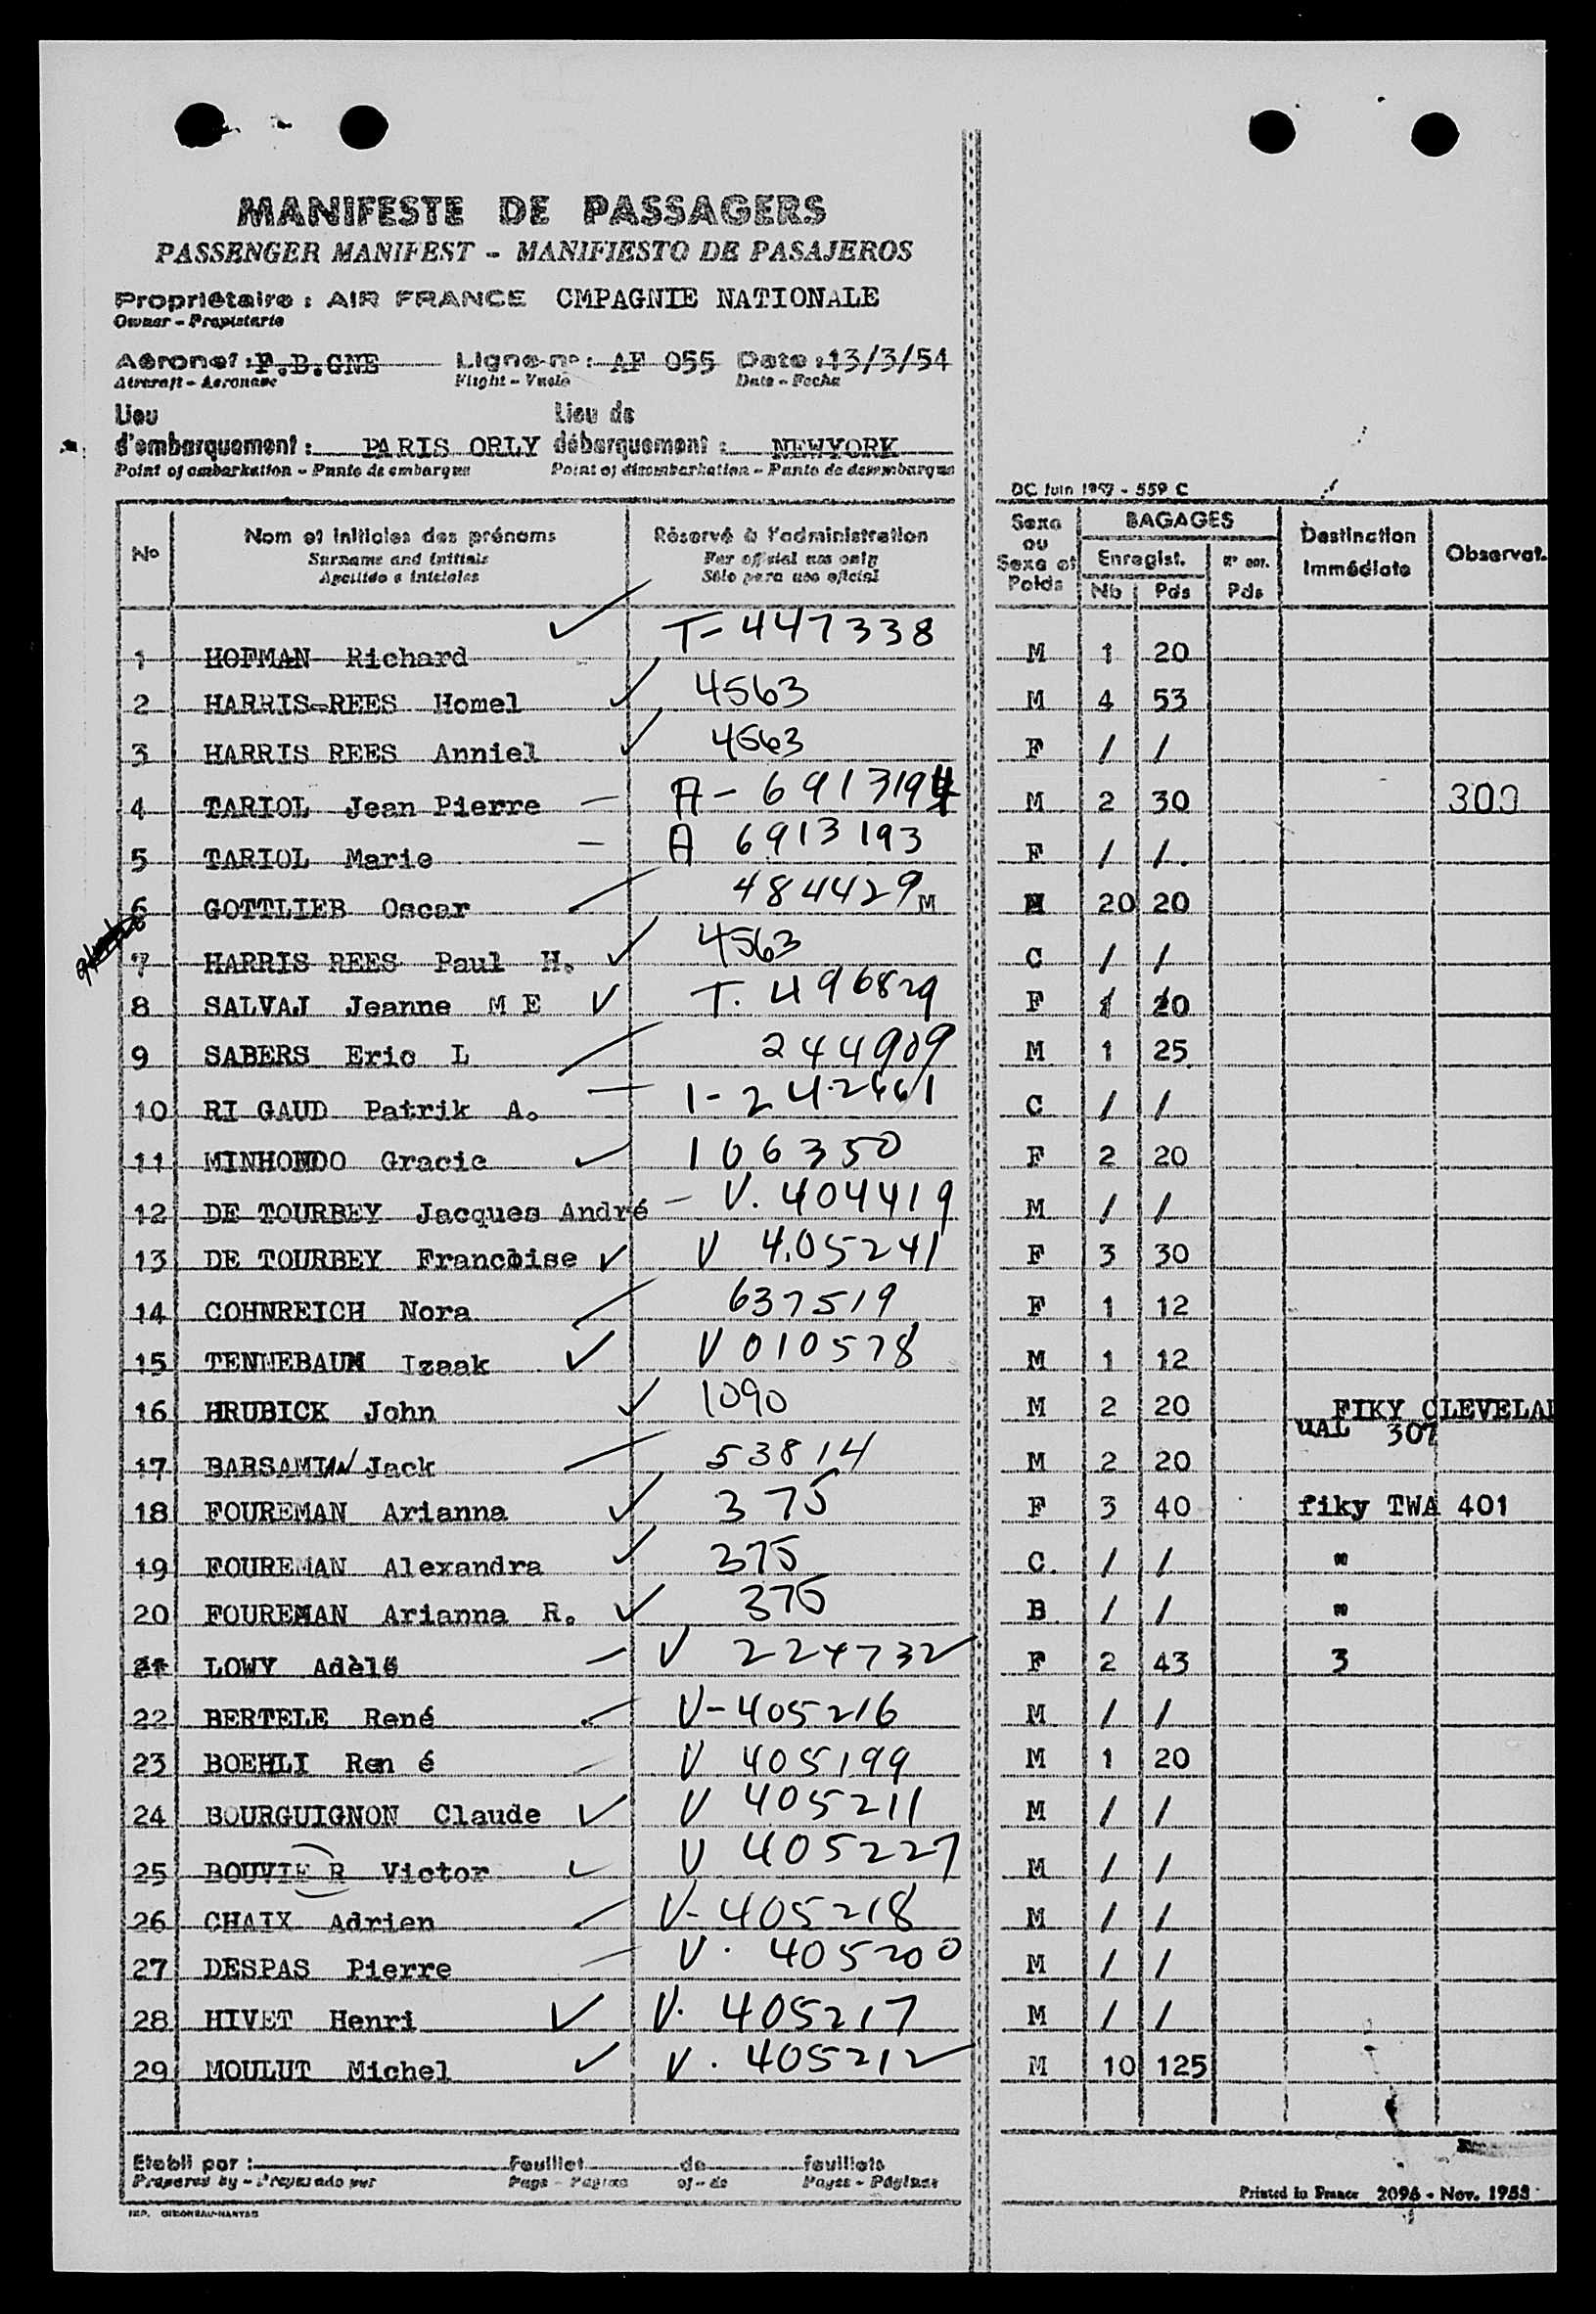 MANIFESTE DE PASSAGERS
PASSENGER MANIFEST - MANIFIESTO DE PASAJEROS
Propriétaire : AIR FRANCE CMPAGNIE NATIONALE
Owner - Propietario
Aéronef : F.B.GNE Ligne nº : AF 055 Date : 13/3/54
Aircraft - Aeronave Flight - Vuelo Date - Fecha
Lieu d'embarquement : PARIS ORLY Lieu de débarquement : NEWYORK
Point of embarkation - Punto de embarque Point of disembarkation - Punto de desembarque
DC Juin - 559 C
Nº Nom et initiales des prénoms Réservé à l'administration Sexe ou Sexe et Poids BAGAGES Destination immédiate Observat.
Surname and initials For official use only Enregist. Nº
Apellido e iniciales Sólo para uso oficial Nb Pds Pds
1 HOFMAN Richard T-447338 M 1 20
2 HARRIS-REES Homel 4563 M 4 53
3 HARRIS REES Anniel 4563 F / /
4 TARIOL Jean Pierre A- 6913194 M 2 30 300
5 TARIOL Marie A 6913193 F / /
6 GOTTLIEB Oscar 484429 M 20 20
7 HARRIS REES Paul H. 4563 C / /
8 SALVAJ Jeanne M E T. 496829 F 1 20
9 SABERS Eric L 244909 M 1 25
10 RI GAUD Patrik A. C / /
11 Gracie 106350 F 2 20
12 DE TOURBEY Jacques André V. 404419 M / /
13 DE TOURBEY Francoise V 4.05241 F 3 30
14 COHNREICH Nora 637519 F 1 12
15 TENNEBAUM Izaak V 010578 M 1 12
16 HRUBICK John 1090 M 2 20 FIKY CLEVELAN
UAL 307
17 BARSAMIAN Jack 53814 M 2 20
18 FOUREMAN Arianna 375 F 3 40 fiky TWA 401
19 FOUREMAN Alexandra 375 C. / / "
20 FOUREMAN Arianna R. 375 B / / "
21 LOWY Adèle V 224732 F 2 43 3
22 BERTELE René V-405216 M / /
23 BOEHLI Ren é V 405199 M 1 20
24 BOURGUIGNON Claude V 405211 M / /
25 BOUVIE R Victor V 405227 M / /
26 CHAIX Adrien V-405218 M / /
27 DESPAS Pierre V. 405200 M / /
28 HIVET Henri V. 405217 M / /
29 MOULUT Michel V. 405212 M 10 125
Etabli par : Feuillet de feuillets
Prepared by - Preparado por Page - Página of - de Pages - Páginas
IMP. Printed in France 2096 - Nov. 1953